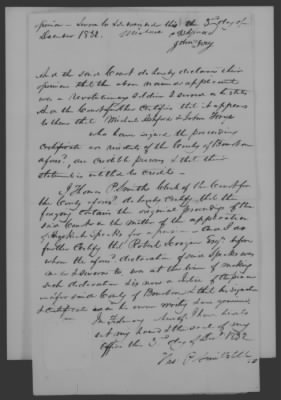 opinion – Sworn to & subscribed this the 3rd day of
December 1832. Michael
John
And the said Court do hereby declare their
opinion that the above named applicant
was a Revolutionary Soldier & served as he states
And the Court further certifies that it appears
to them that Michael and John
who have signed the preceeding
Certificate are residents of the County of Bourbon
afores'd, are credible persons & that their
statement is entitled to credit –
I Thomas P Smith Clerk of the Court for
the County afores'd do hereby certify that the
foregoing contains the original proceedings of the
said Court in the matter of the application
of Hezekiah Speaks for a pension – And I do
further Certify that Robert Esqr before
whom the afores'd declaration of said Speaks was
made & sworn to was at the time of making
such declaration & is now a Justice of the peace
in & for said County of Bourbon & that his signature
as above is genuine
In Testimony whereof I have hereto
set my hand & the seal of my
Office this 3rd day of Decr 1832
Thos P Smith Clk